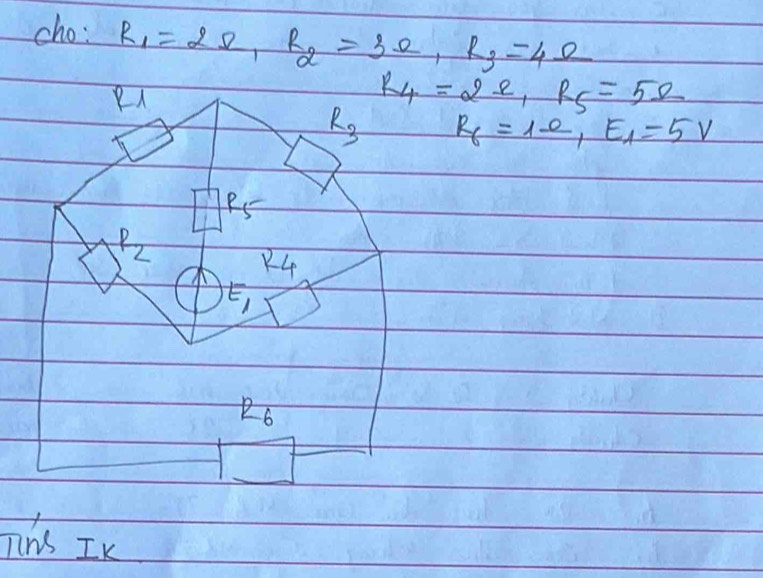 cho: R1 = 2Ω, R2 = 3Ω, R3 = 4Ω
R4 = 2Ω, R5 = 5Ω
R6 = 1Ω, E1 = 5V
R1
R3
R5
R2
R4
E1
R6
Tính IK